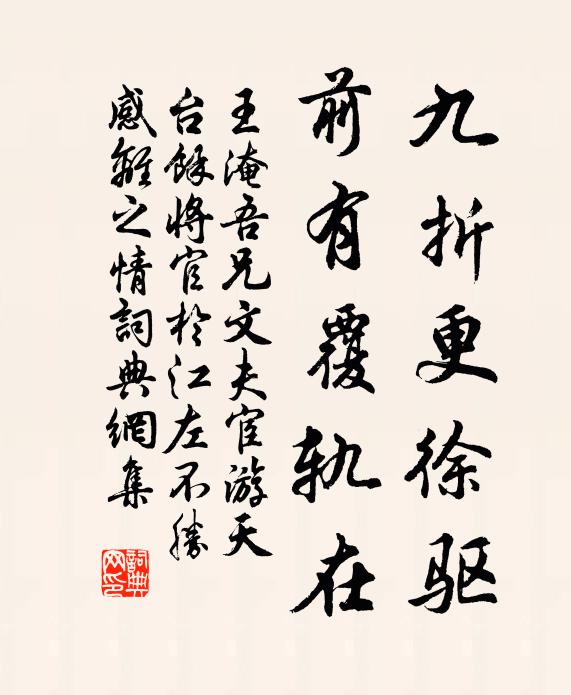 九折更徐驱
前有覆轨在
王淹吾兄文夫宦游天
台馀将官於江左不勝
感難之情詞典網集
詞典
网印